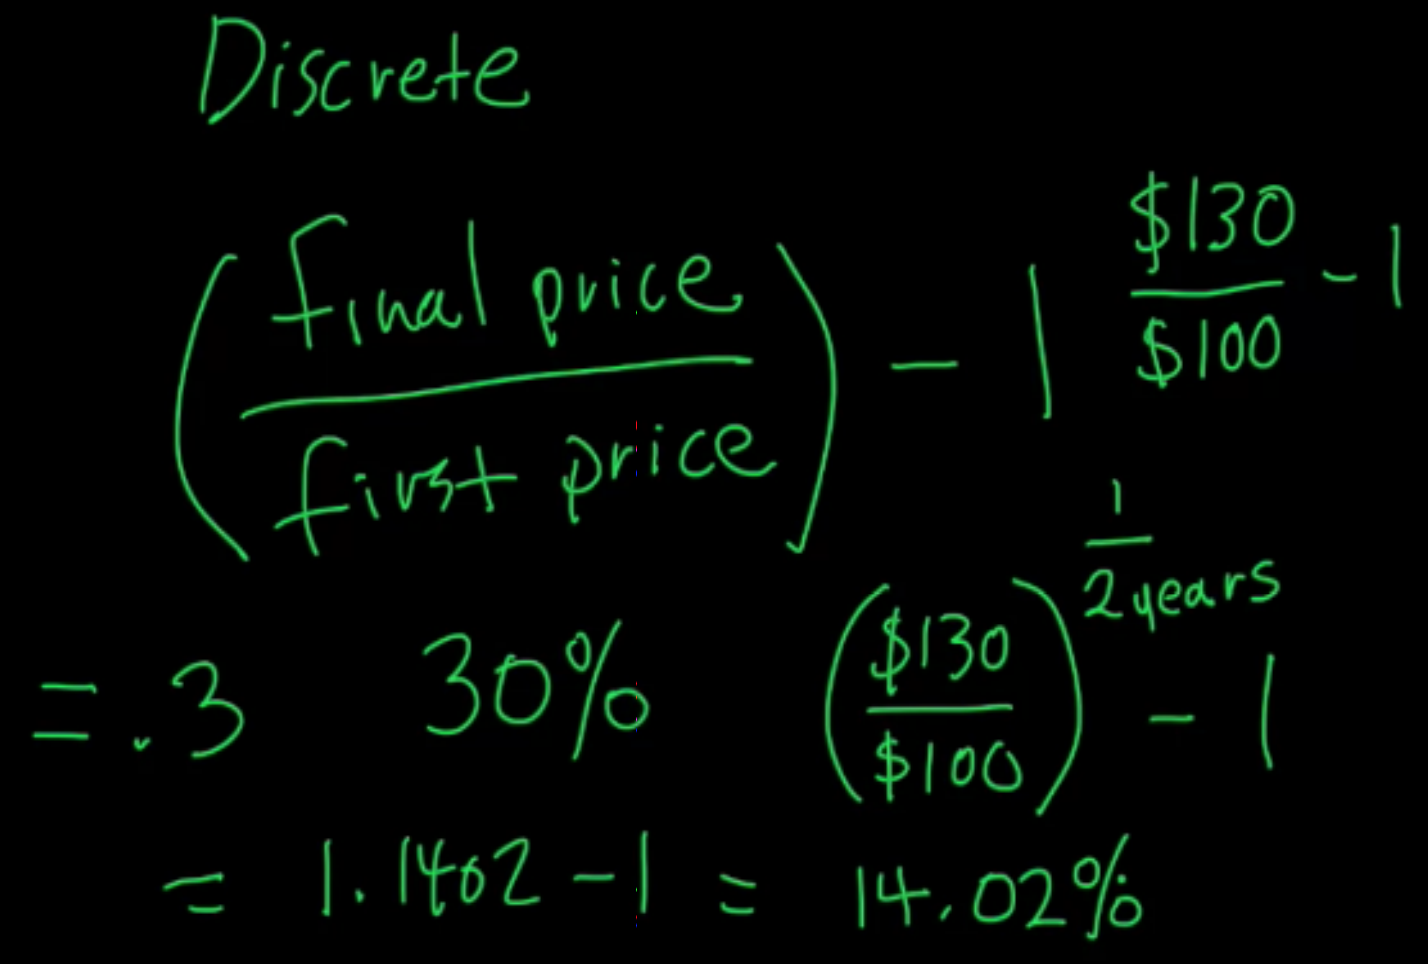 Discrete
(final price / first price) - 1
$130 / $100 - 1
= .3 30%
($130 / $100)^(1 / 2 years) - 1
= 1.1402 - 1 = 14.02%